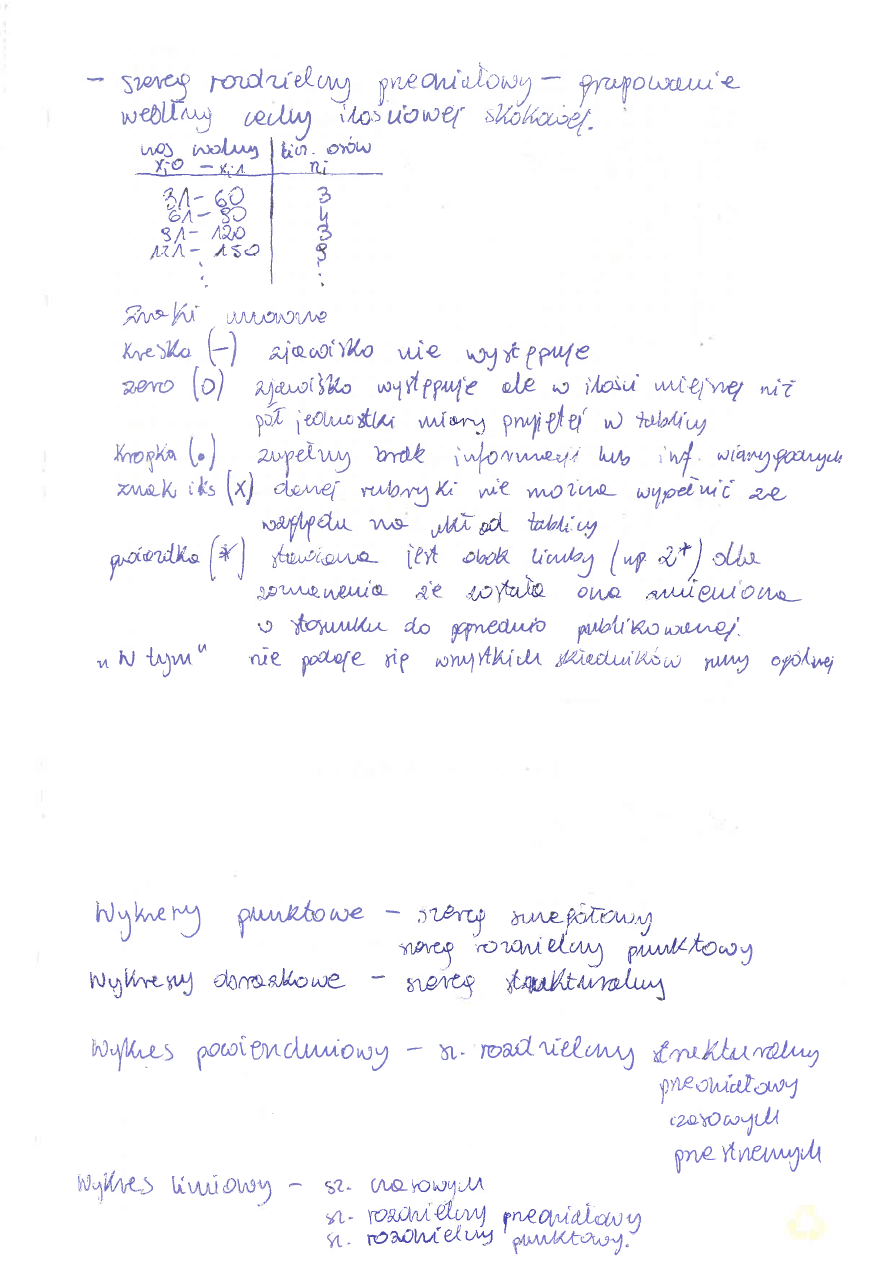 – szereg rozdzielczy przedziałowy – grupowanie
według cechy ilościowej skokowej.
czas wolny | licz. osób
xi0 – xi1 | ni
31 – 60 | 3
61 – 90 | 4
91 – 120 | 3
121 – 150 | 9
⋮ ⋮
Znaki umowne
kreska (–) zjawisko nie występuje
zero (0) zjawisko występuje ale w ilości mniejszej niż
pół jednostki miary przyjętej w tablicy
kropka (.) zupełny brak informacji lub inf. wiarygodnych
znak iks (x) danej rubryki nie można wypełnić ze
względu na układ tablicy
gwiazdka (*) stawiana jest obok liczby (np 2*) dla
zaznaczenia że została ona zmieniona
w stosunku do poprzednio publikowanej.
„W tym" nie podaje się wszystkich składników sumy ogólnej
Wykresy punktowe – szereg szczegółowy
szereg rozdzielczy punktowy
Wykresy obrazkowe – szereg strukturalny
Wykres powierzchniowy – sz. rozdzielczy strukturalny
przedziałowy
czasowych
przestrzennych
Wykres liniowy – sz. czasowych
sz. rozdzielczy przedziałowy
sz. rozdzielczy punktowy.